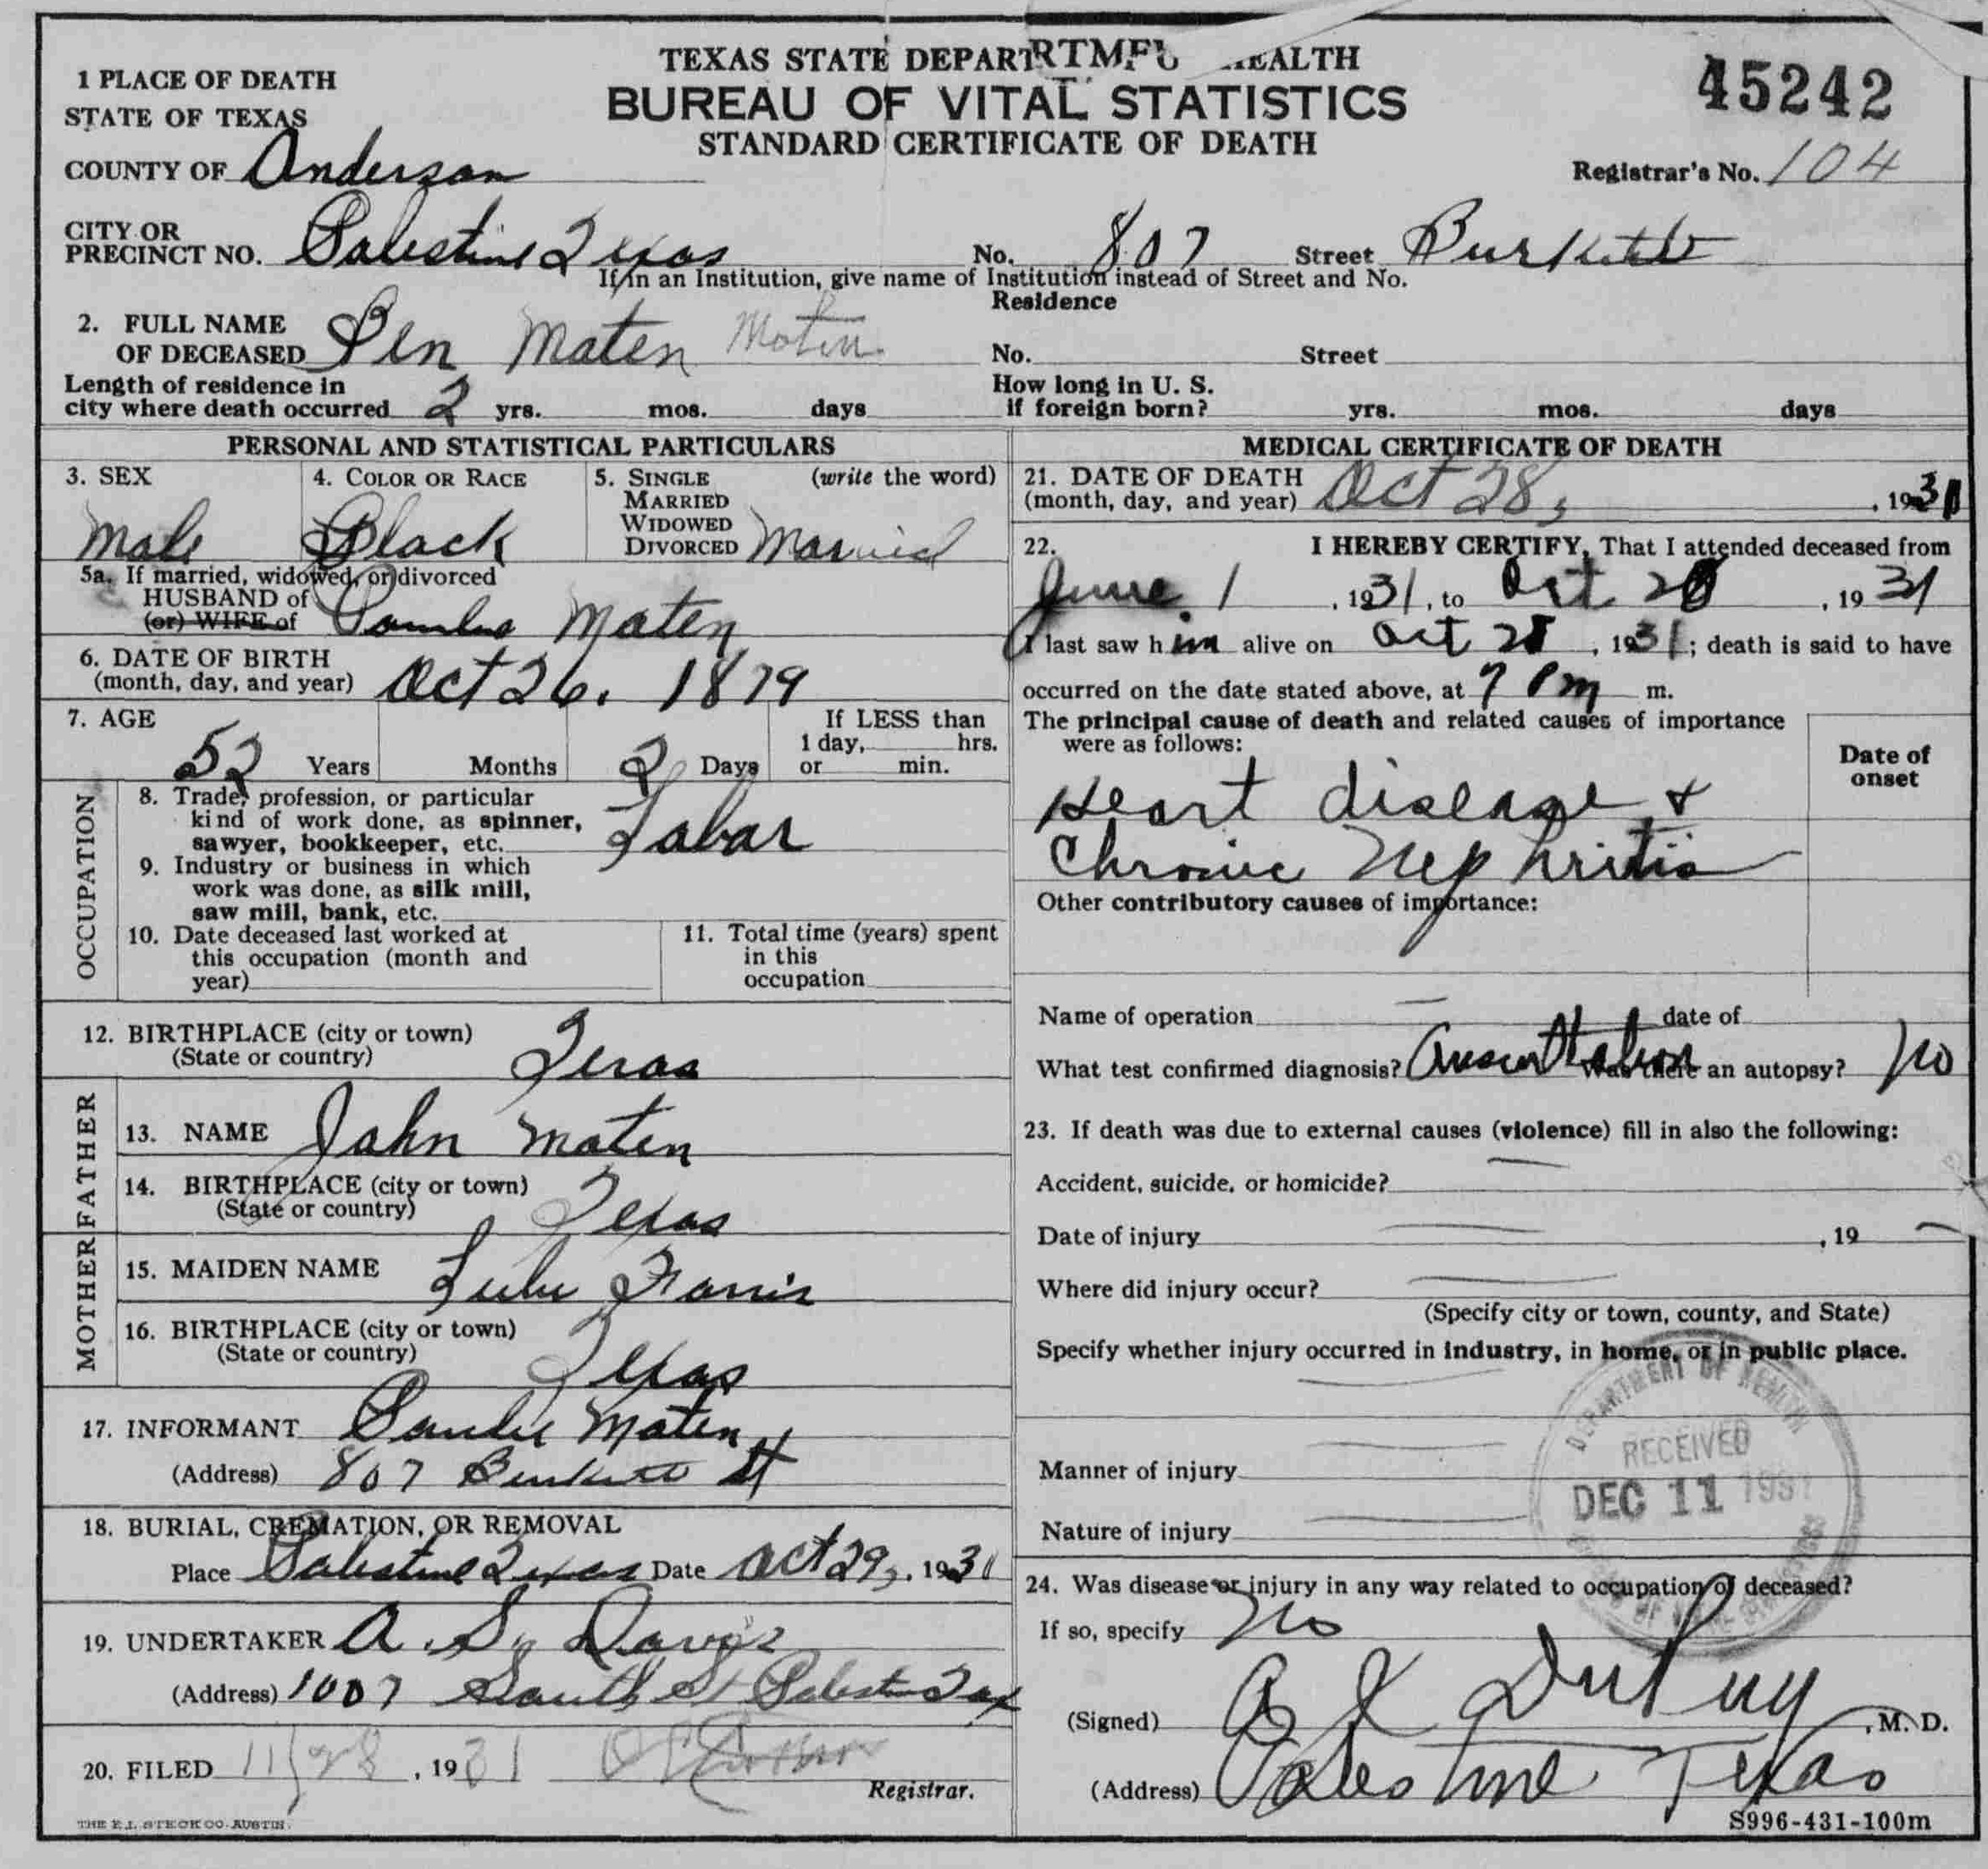 TEXAS STATE DEPARTMENT HEALTH
BUREAU OF VITAL STATISTICS
STANDARD CERTIFICATE OF DEATH
45242
Registrar's No. 104
1 PLACE OF DEATH
STATE OF TEXAS
COUNTY OF Anderson
CITY OR
PRECINCT NO. Palestine Texas No. 807 Street Burkitt
If in an Institution, give name of Institution instead of Street and No.
Residence
2. FULL NAME
OF DECEASED Ben Maten Moten No. Street
Length of residence in How long in U. S.
city where death occurred 2 yrs. mos. days if foreign born? yrs. mos. days
PERSONAL AND STATISTICAL PARTICULARS
3. SEX 4. COLOR OR RACE 5. SINGLE (write the word)
MARRIED
WIDOWED
DIVORCED
Male Black Married
5a. If married, widowed, or divorced
HUSBAND of
(or) WIFE of Maten
6. DATE OF BIRTH
(month, day, and year) Oct 26. 1879
7. AGE If LESS than
1 day, hrs.
52 Years Months 2 Days or min.
OCCUPATION
8. Trade, profession, or particular
kind of work done, as spinner,
sawyer, bookkeeper, etc. Labar
9. Industry or business in which
work was done, as silk mill,
saw mill, bank, etc.
10. Date deceased last worked at
this occupation (month and
year)
11. Total time (years) spent
in this
occupation
12. BIRTHPLACE (city or town)
(State or country) Texas
FATHER
13. NAME John Maten
14. BIRTHPLACE (city or town)
(State or country) Texas
MOTHER
15. MAIDEN NAME Lulu
16. BIRTHPLACE (city or town)
(State or country) Texas
17. INFORMANT Maten
(Address) 807 Burkitt St
18. BURIAL, CREMATION, OR REMOVAL
Place Palestine Texas Date Oct 29, 1931
19. UNDERTAKER A. S. Davis
(Address) 1007 South St Palestine Tex
20. FILED 11/28, 1931
Registrar.
THE E.L. STECK CO. AUSTIN.
MEDICAL CERTIFICATE OF DEATH
21. DATE OF DEATH
(month, day, and year) Oct 28, , 1931
22. I HEREBY CERTIFY, That I attended deceased from
June 1, 1931, to Oct 28, 1931
I last saw him alive on Oct 28, 1931; death is said to have
occurred on the date stated above, at 7 Pm m.
The principal cause of death and related causes of importance
were as follows:
Date of
onset
Heart disease &
Chronic Nephritis
Other contributory causes of importance:
Name of operation — date of
What test confirmed diagnosis? Auscultation Was there an autopsy? No
23. If death was due to external causes (violence) fill in also the following:
Accident, suicide, or homicide? —
Date of injury — , 19 —
Where did injury occur? —
(Specify city or town, county, and State)
Specify whether injury occurred in industry, in home, or in public place.
Manner of injury
Nature of injury
DEPARTMENT OF HEALTH
RECEIVED
DEC 11 1931
24. Was disease or injury in any way related to occupation of deceased?
If so, specify No
(Signed) , M. D.
(Address) Palestine Texas
S996-431-100m